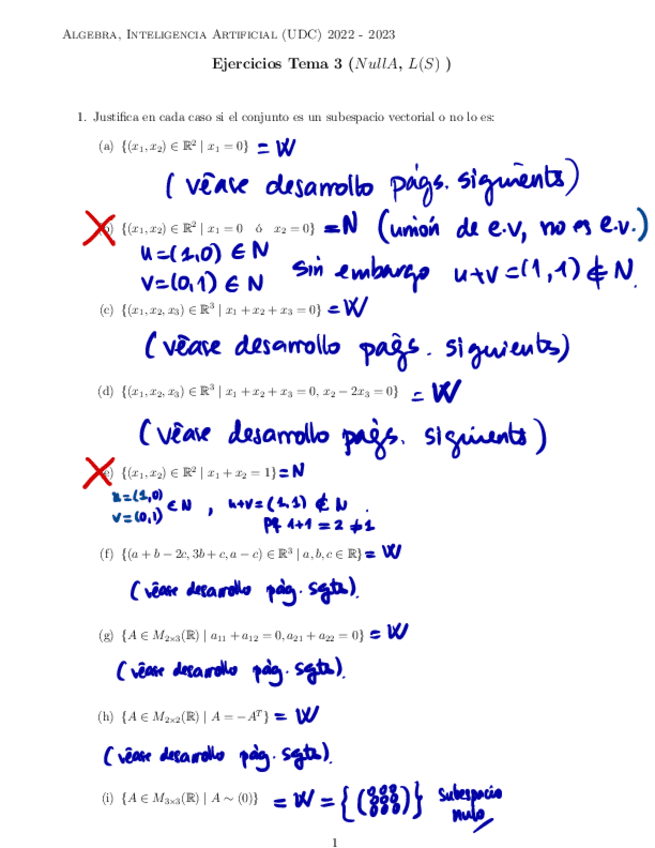 ALGEBRA, INTELIGENCIA ARTIFICIAL (UDC) 2022 - 2023
Ejercicios Tema 3 (NullA, L(S) )
1. Justifica en cada caso si el conjunto es un subespacio vectorial o no lo es:
(a) {(x₁, x₂) ∈ ℝ² | x₁ = 0} = W
(véase desarrollo págs. siguients)
) {(x₁, x₂) ∈ ℝ² | x₁ = 0 ó x₂ = 0} = N (unión de e.v, no es e.v.)
u=(1,0) ∈ N
v=(0,1) ∈ N sin embargo u+v=(1,1) ∉ N.
(c) {(x₁, x₂, x₃) ∈ ℝ³ | x₁ + x₂ + x₃ = 0} = W
(véase desarrollo págs. siguients)
(d) {(x₁, x₂, x₃) ∈ ℝ³ | x₁ + x₂ + x₃ = 0, x₂ − 2x₃ = 0} = W
(véase desarrollo págs. siguients)
) {(x₁, x₂) ∈ ℝ² | x₁ + x₂ = 1} = N
u=(1,0)
v=(0,1) ∈ N , u+v=(1,1) ∉ N .
pq 1+1=2≠1
(f) {(a + b − 2c, 3b + c, a − c) ∈ ℝ³ | a, b, c ∈ ℝ} = W
(véase desarrollo pág. sgte).
(g) {A ∈ M₂ₓ₃(ℝ) | a₁₁ + a₁₂ = 0, a₂₁ + a₂₂ = 0} = W
(véase desarrollo pág. sgte).
(h) {A ∈ M₂ₓ₂(ℝ) | A = −Aᵀ} = W
(véase desarrollo pág. sgte).
(i) {A ∈ M₃ₓ₃(ℝ) | A ∼ (0)} = W = {(000 000 000)} Subespacio
nulo
1